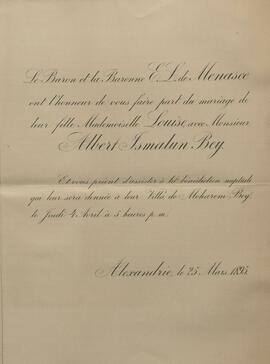 Le Baron et la Baronne E. L. de Menasce
ont l'honneur de vous faire part du mariage de
leur fille Mademoiselle Louise, avec Monsieur
Albert Ismalun Bey.
Et vous prient d'assister à la bénédiction nuptiale
qui leur sera donnée à leur Villa de Moharem-Bey,
le Jeudi 4 Avril à 5 heures p. m.
Alexandrie, le 25 Mars 1895.